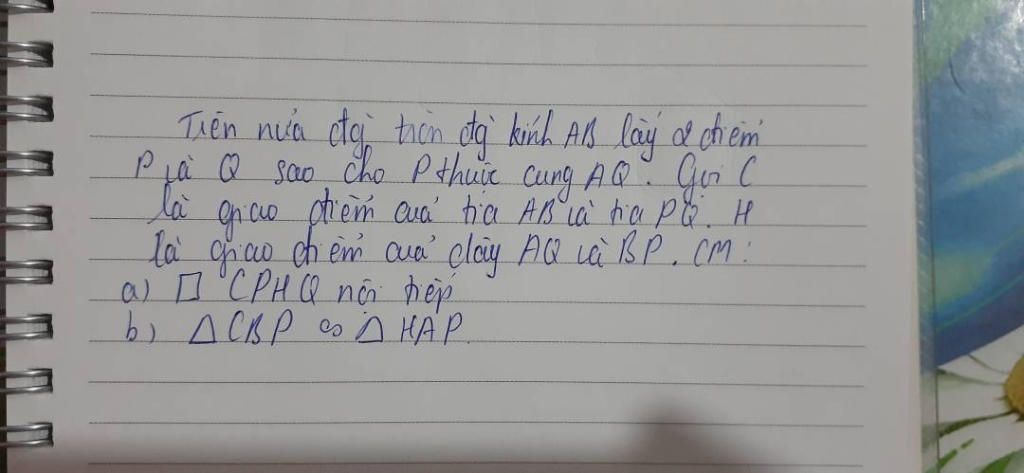 Trên nửa đtg tròn đtg kính AB lấy 2 điểm
P và Q sao cho P thuộc cung AQ. Gọi C
là giao điểm của tia AB và tia PQ. H
là giao điểm của dây AQ và BP. CM:
a) □ CPHQ nội tiếp
b) △ CBP ∽ △ HAP.